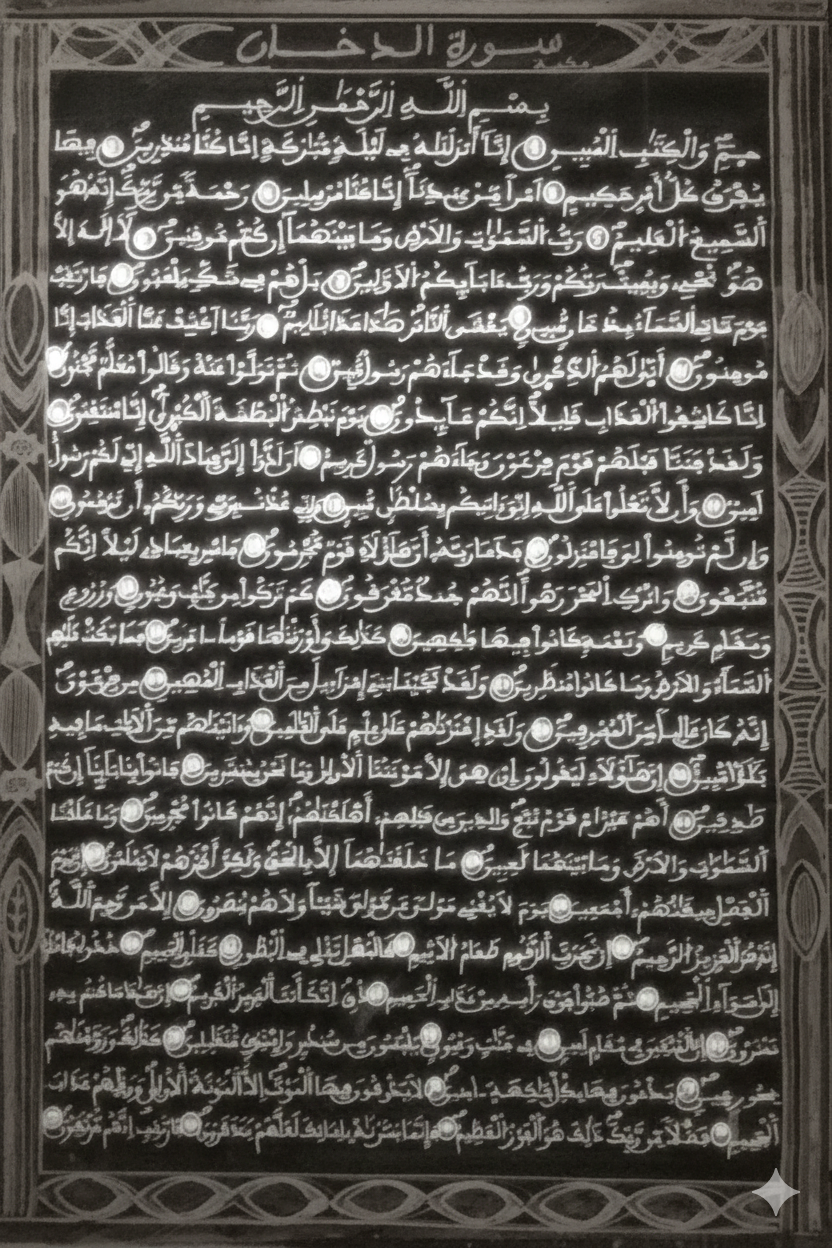 سورة الدخان
مكية
بسم الله الرحمن الرحيم
حم والكتب المبين إنا أنزلنه في ليلة مبركة إنا كنا منذرين فيها
يفرق كل أمر حكيم أمرا من عندنا إنا كنا مرسلين رحمة من ربك إنه هو
السميع العليم رب السموت والارض وما بينهما إن كنتم موقنين لا إله إلا
هو يحي ويميت ربكم ورب ءابآيكم الاولين بل هم في شك يلعبون فارتقب
يوم تاتي السمآء بدخان مبين يغشى الناس هذا عذاب اليم ربنا اكشف عنا العذاب إنا
مومنون أنى لهم الذكرى وقد جآءهم رسول مبين ثم تولوا عنه وقالوا معلم مجنون
إنا كاشفوا العذاب قليلا انكم عآيدون يوم نبطش البطشة الكبرى إنا منتقمون
ولقد فتنا قبلهم قوم فرعون وجآءهم رسول كريم أن ادوا إلي عباد الله إني لكم رسول
امين وأن لا تعلوا على الله إني ءاتيكم بسلطن مبين وإني عذت بربي وربكم أن ترجمون
وإن لم تومنوا لي فاعتزلون فدعا ربه أن هؤلاء قوم مجرمون فاسر بعبادي ليلا انكم
متبعون واترك البحر رهوا انهم جند مغرقون كم تركوا من جنت وعيون وزروع
ومقام كريم ونعمة كانوا فيها فكهين كذلك وأورثنها قوما ـاخرين فما بكت عليهم
السمآء والارض وما كانوا منظرين ولقد نجينا بني إسرآءيل من العذاب المهين من فرعون
إنه كان عاليا من المسرفين ولقد اخترنهم على علم على العلمين وءاتينهم من الايت ما فيه
بلؤا مبين إن هؤلاء ليقولون إن هي إلا موتتنا الاولى وما نحن بمنشرين فاتوا بئابآينا إن كنتم
صدقين أهم خير ام قوم تبع والذين من قبلهم أهلكنهم إنهم كانوا مجرمين وما خلقنا
السموت والارض وما بينهما لعبين ما خلقنهما إلا بالحق ولكن أكثرهم لا يعلمون إن يوم
الفصل ميقتهم أجمعين يوم لا يغني مولى عن مولى شيئا ولا هم ينصرون إلا من رحم الله
إنه هو العزيز الرحيم إن شجرت الزقوم طعام الاثيم كالمهل تغلي في البطون كغلي الحميم خذوه فاعتلوه
إلى سوآء الجحيم ثم صبوا فوق رأسه من عذاب الحميم ذق إنك أنت العزيز الكريم إن هذا ما كنتم به
تمترون إن المتقين في مقام امين في جنت وعيون يلبسون من سندس وإستبرق متقبلين كذلك وزوجنهم
بحور عين يدعون فيها بكل فكهة ـامنين لا يذوقون فيها الموت إلا الموتة الاولى ووقيهم عذاب
الجحيم فضلا من ربك ذلك هو الفوز العظيم فإنما يسرنه بلسانك لعلهم يتذكرون فارتقب إنهم مرتقبون